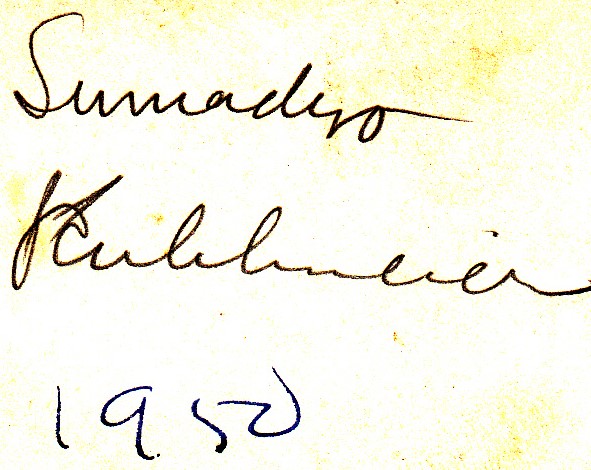 Sumadyo
Kuhlmeier
1950